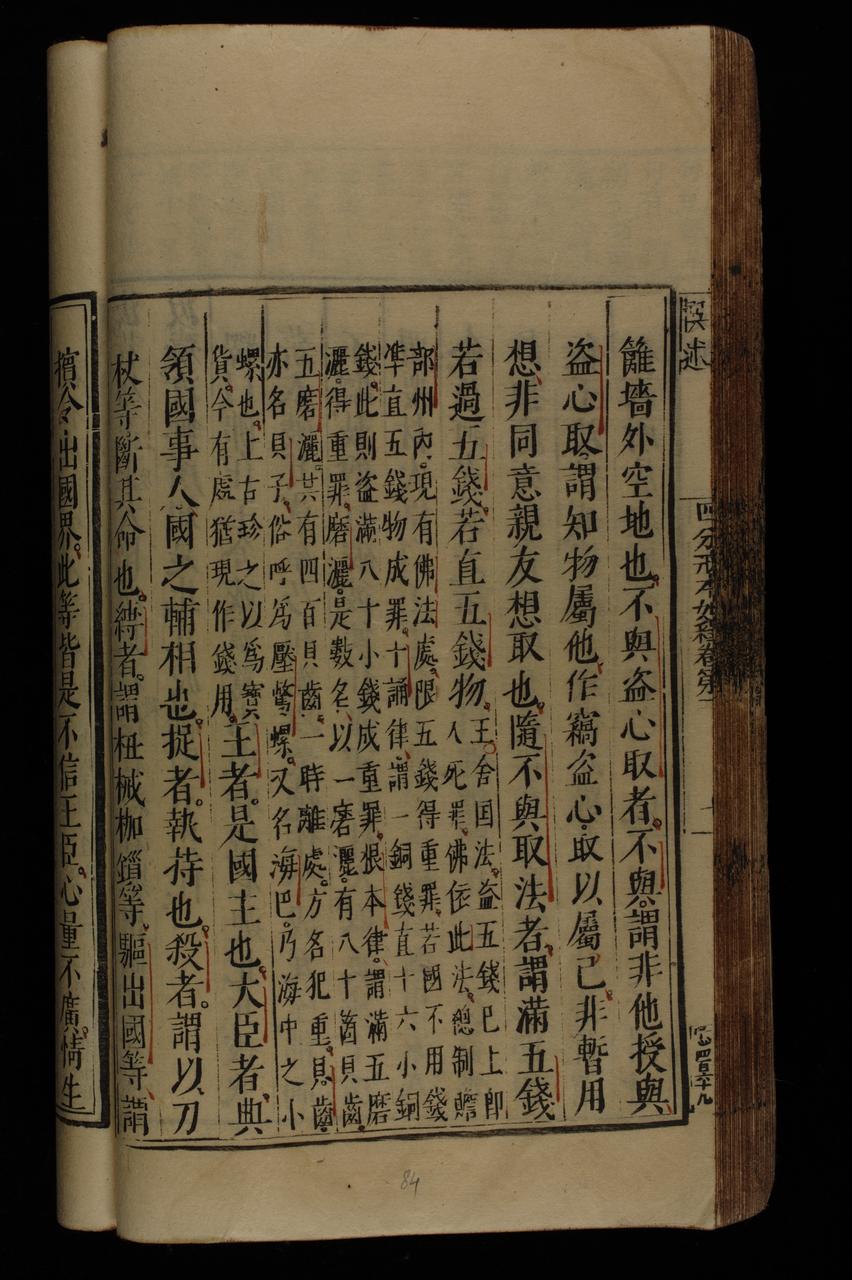 撰述
四分戒本如釋卷第一
籬墻外空地也不與盜心取者不與謂非他授與
盜心取謂知物屬他作竊盜心取以屬己非暫用
想非同意親友想取也隨不與取法者謂滿五錢
若過五錢若直五錢物
王舍国法盜五錢已上即
入死罪佛依此法總制贍
部州內現有佛法處限五錢得重罪若國不用錢
準直五錢物成罪十誦律謂一銅錢直十六小銅
錢此則盜滿八十小錢成重罪根本律謂滿五磨
灑得重罪磨灑是數名以一磨灑有八十箇貝齒
五磨灑共有四百貝齒一時離處方名犯重貝齒
亦名貝子俗呼為壓驚螺又名海巴乃海中之小
螺也上古珍之以為寶
貨今有處猶現作錢用
王者是國主也大臣者典
領國事人國之輔相也捉者執持也殺者謂以刀
杖等斷其命也縛者謂杻械枷鎖等驅出國等謂
擯令出國界此等皆是不信王臣心量不廣情生
84